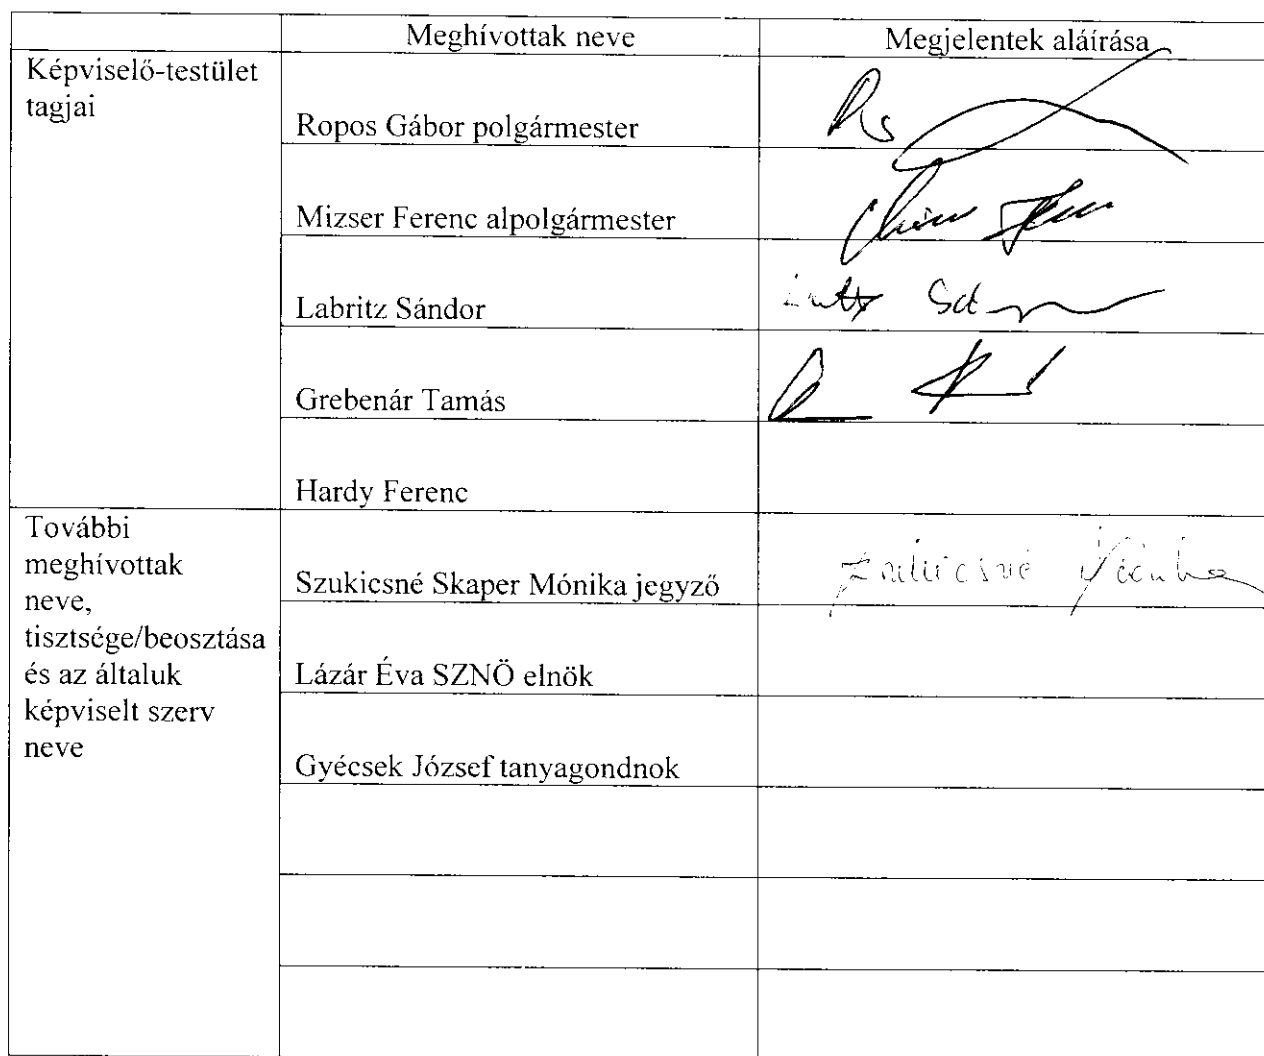 Meghívottak neve
Megjelentek aláírása
Képviselő-testület
tagjai
Ropos Gábor polgármester
Mizser Ferenc alpolgármester
Labritz Sándor
Grebenár Tamás
Hardy Ferenc
További
meghívottak
neve,
tisztsége/beosztása
és az általuk
képviselt szerv
neve
Szukicsné Skaper Mónika jegyző
Lázár Éva SZNÖ elnök
Gyécsek József tanyagondnok